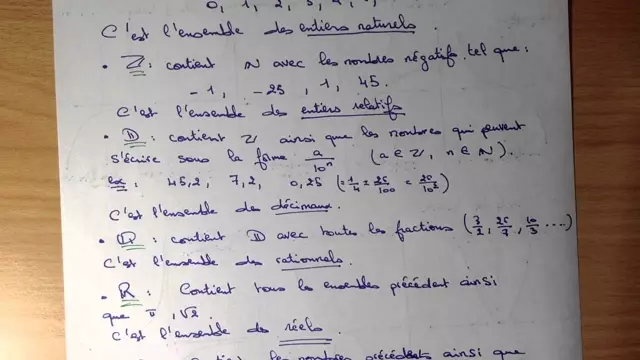 0, 1, 2, 3, 4, 5,
C'est l'ensemble des entiers naturels.
• ℤ : contient ℕ avec les nombres négatifs tel que :
-1, -25, 1, 45.
C'est l'ensemble des entiers relatifs
• 𝔻 : contient ℤ ainsi que les nombres qui peuvent
s'écrire sous la forme a/10ⁿ (a ∈ ℤ, n ∈ ℕ).
ex : 45,2, 7,2, 0,25 (= 1/4 = 25/100 = 25/10²)
C'est l'ensemble des décimaux.
• ℚ : contient 𝔻 avec toutes les fractions (3/2, 25/7, 10/3 ...)
C'est l'ensemble des rationnels.
• ℝ : Contient tous les ensembles précédent ainsi
que π, √2.
C'est l'ensemble des réels.
les nombres précédents ainsi que